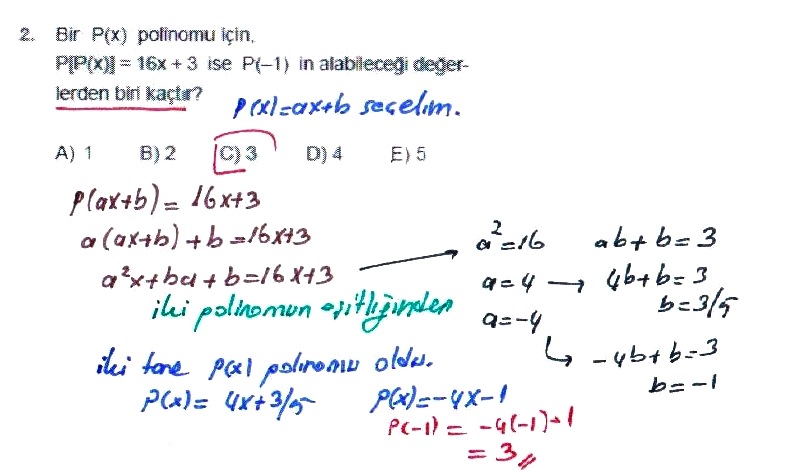 2. Bir P(x) polinomu için,
P[P(x)] = 16x + 3 ise P(-1) in alabileceği değer-
lerden biri kaçtır?
P(x)=ax+b seçelim.
A) 1 B) 2 C) 3 D) 4 E) 5
P(ax+b) = 16x+3
a(ax+b)+b=16x+3
a²x+ba+b=16x+3
iki polinomun eşitliğinden
a²=16 ab+b=3
a=4 → 4b+b=3
b=3/5
a=-4
-4b+b=3
b=-1
iki tane P(x) polinomu oldu.
P(x)= 4x+3/5 P(x)=-4x-1
P(-1) = -4(-1)-1
= 3